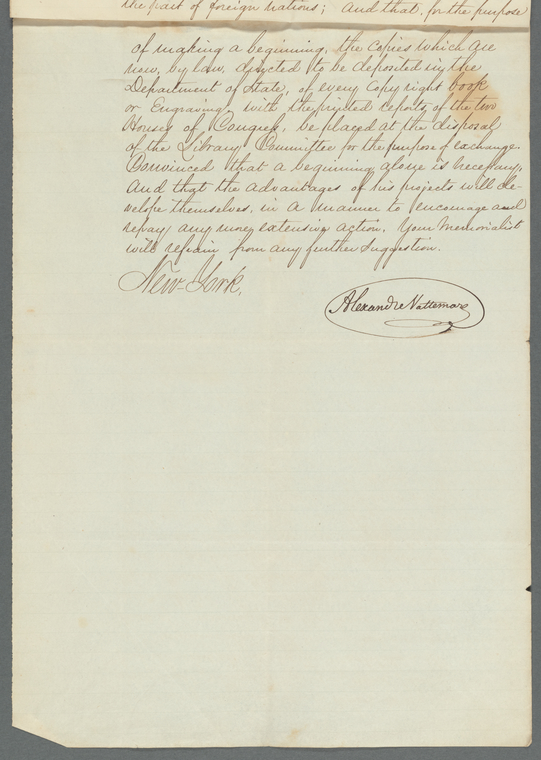 the part of foreign nations; And that, for the purpose
of making a beginning, the copies which are
now, by law, directed to be deposited in the
Department of State, of every Copy right book
or Engraving, with the printed reports of the two
Houses of Congress, be placed at the disposal
of the Library Committee for the purpose of exchange.
Convinced that a beginning alone is necessary,
And that the advantages of his projects will de-
velope themselves, in a manner to encourage and
repay any more extensive action, Your Memorialist
will refrain from any further suggestion.
New-York,
Alexandre Vattemare